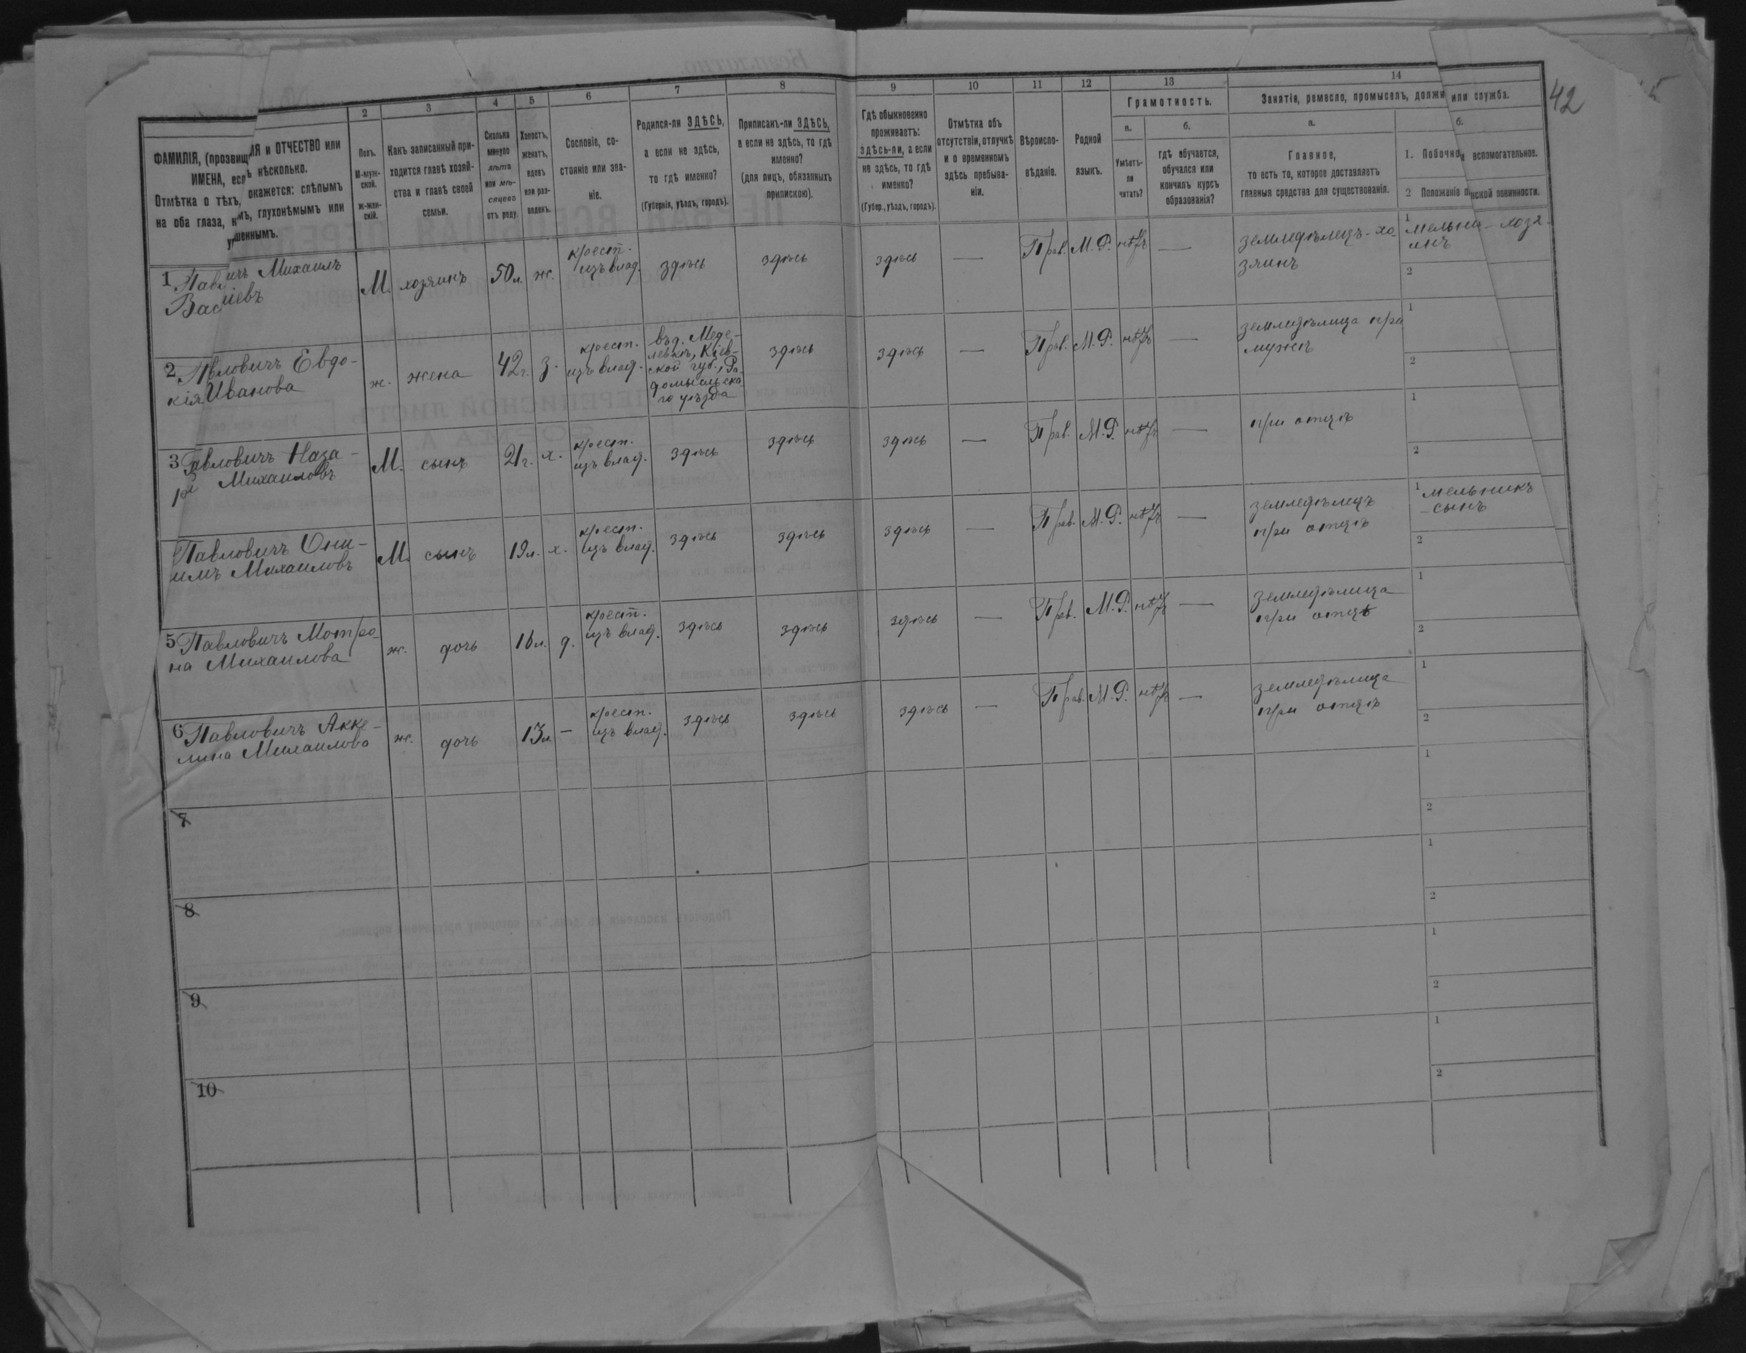 42
2 3 4 5 6 7 8 9 10 11 12 13 14
ФАМИЛІЯ, (прозвищ ІЯ и ОТЧЕСТВО или
ИМЕНА, есл ь нѣсколько.
Отмѣтка о тѣхъ, окажется: слѣпымъ
на оба глаза, н мъ, глухонѣмымъ или
ушеннымъ.
Полъ.
М-муж-
ской.
Ж-жен-
скій.
Какъ записанный при-
ходится главѣ хозяй-
ства и главѣ своей
семьи.
Сколько
минуло
лѣтъ
или мѣ-
сяцевъ
отъ роду.
Холостъ,
женатъ,
вдовъ
или раз-
веденъ.
Сословіе, со-
стояніе или зва-
ніе.
Родился-ли ЗДѢСЬ,
а если не здѣсь,
то гдѣ именно?
(Губернія, уѣздъ, городъ).
Приписанъ-ли ЗДѢСЬ,
а если не здѣсь, то гдѣ
именно?
(для лицъ, обязанныхъ
припискою).
Гдѣ обыкновенно
проживаетъ:
здѣсь-ли, а если
не здѣсь, то гдѣ
именно?
(Губер., уѣздъ, городъ).
Отмѣтка объ
отсутствіи, отлучкѣ
и о временномъ
здѣсь пребыва-
ніи.
Вѣроиспо-
вѣданіе.
Родной
языкъ.
Грамотность.
а. б.
Умѣетъ-
ли
читать?
гдѣ обучается,
обучался или
кончилъ курсъ
образованія?
Занятія, ремесло, промыселъ, должн или служба.
а. б.
Главное,
то есть то, которое доставляетъ
главныя средства для существованія.
1. Побочно вспомогательное.
2 Положеніе п нской повинности.
1 Пав ичъ Михаилъ
Вас іевъ
М. хозяинъ 50 л. ж.
крест.
изъ влад.
здѣсь здѣсь здѣсь — Прав. М.Р. нѣтъ —
земледѣлецъ-хо
зяинъ
1 мельни - хозя
инъ
2
2 Павловичъ Евдо-
кія Иванова
ж. жена 42 г. з.
крест.
изъ влад.
въ д. Меде-
левкѣ, Кіев-
ской губ., Ра
домысльска
го уѣзда
здѣсь здѣсь — Прав. М.Р. нѣтъ —
земледѣлица при
мужѣ
1
2
3 Павловичъ Наза-
рій Михаиловъ
М. сынъ 21 г. х.
крест.
изъ влад.
здѣсь здѣсь здѣсь — Прав. М.Р. нѣтъ —
при отцѣ
1
2
Павловичъ Они-
имъ Михаиловъ
М. сынъ 19 л. х.
крест.
изъ влад.
здѣсь здѣсь здѣсь — Прав. М.Р. нѣтъ —
земледѣлецъ
при отцѣ
1 мельникъ
-сынъ
2
5 Павловичъ Мотро
на Михаилова
ж. дочь 16 л. д.
крест.
изъ влад.
здѣсь здѣсь здѣсь Прав. М.Р. нѣтъ —
земледѣлица
при отцѣ
1
2
6 Павловичъ Аку-
лина Михаилова
ж. дочь 13 л. —
крест.
изъ влад.
здѣсь здѣсь здѣсь — Прав. М.Р. нѣтъ —
земледѣлица
при отцѣ
1
2
7
1
2
8
1
2
9
1
2
10
1
2